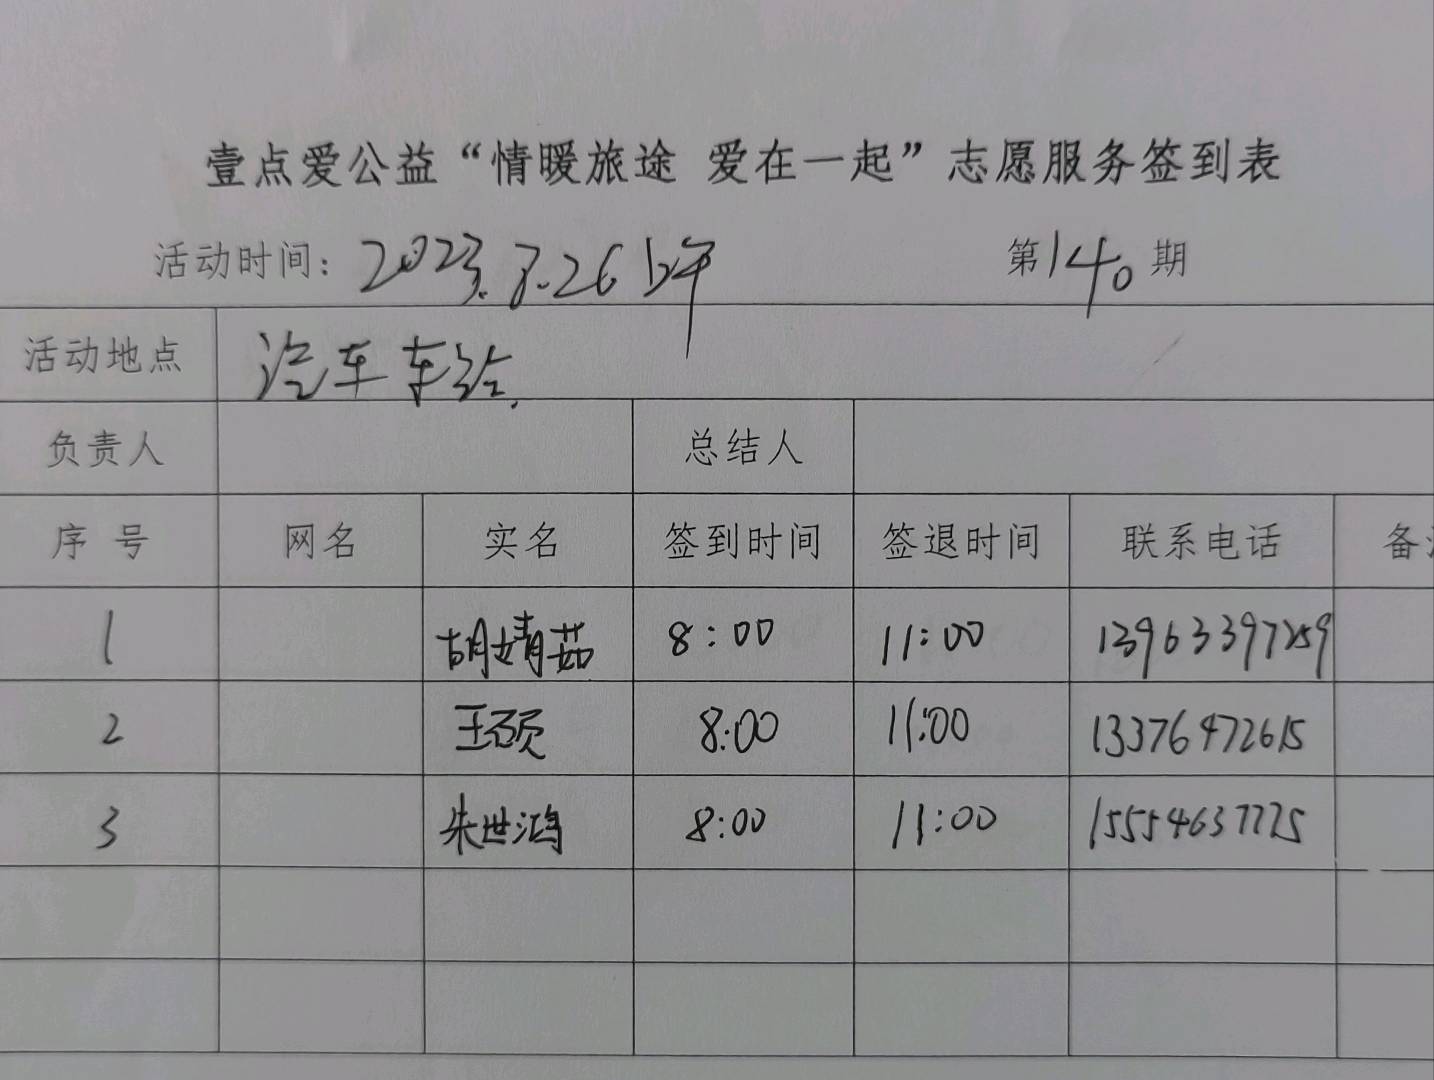 壹点爱公益“情暖旅途 爱在一起”志愿服务签到表
活动时间: 2023.8.26上午 第140期
活动地点 汽车车站
负责人 总结人
序号 网名 实名 签到时间 签退时间 联系电话 备
1 胡婧茹 8:00 11:00 13963397259
2 王硕 8:00 11:00 13376472615
3 朱世鸿 8:00 11:00 15554637775